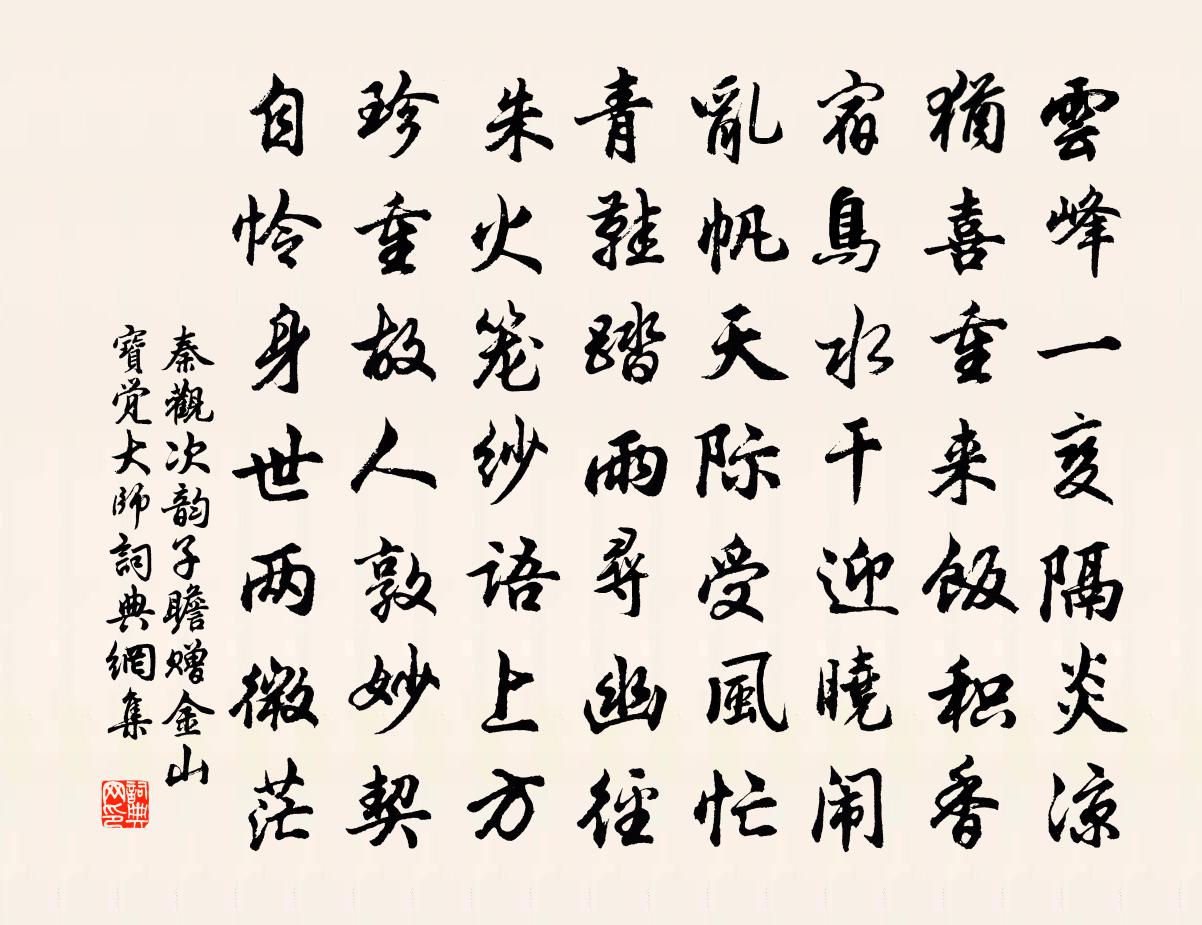 雲峰一变隔炎凉
猶喜重来飯积香
宿鳥水干迎曉闹
亂帆天际受風忙
青鞋踏雨尋幽徑
朱火笼纱语上方
珍重故人敦妙契
自怜身世两微茫
秦觀次韵子瞻赠金山
寶觉大師詞典網集
詞典网印